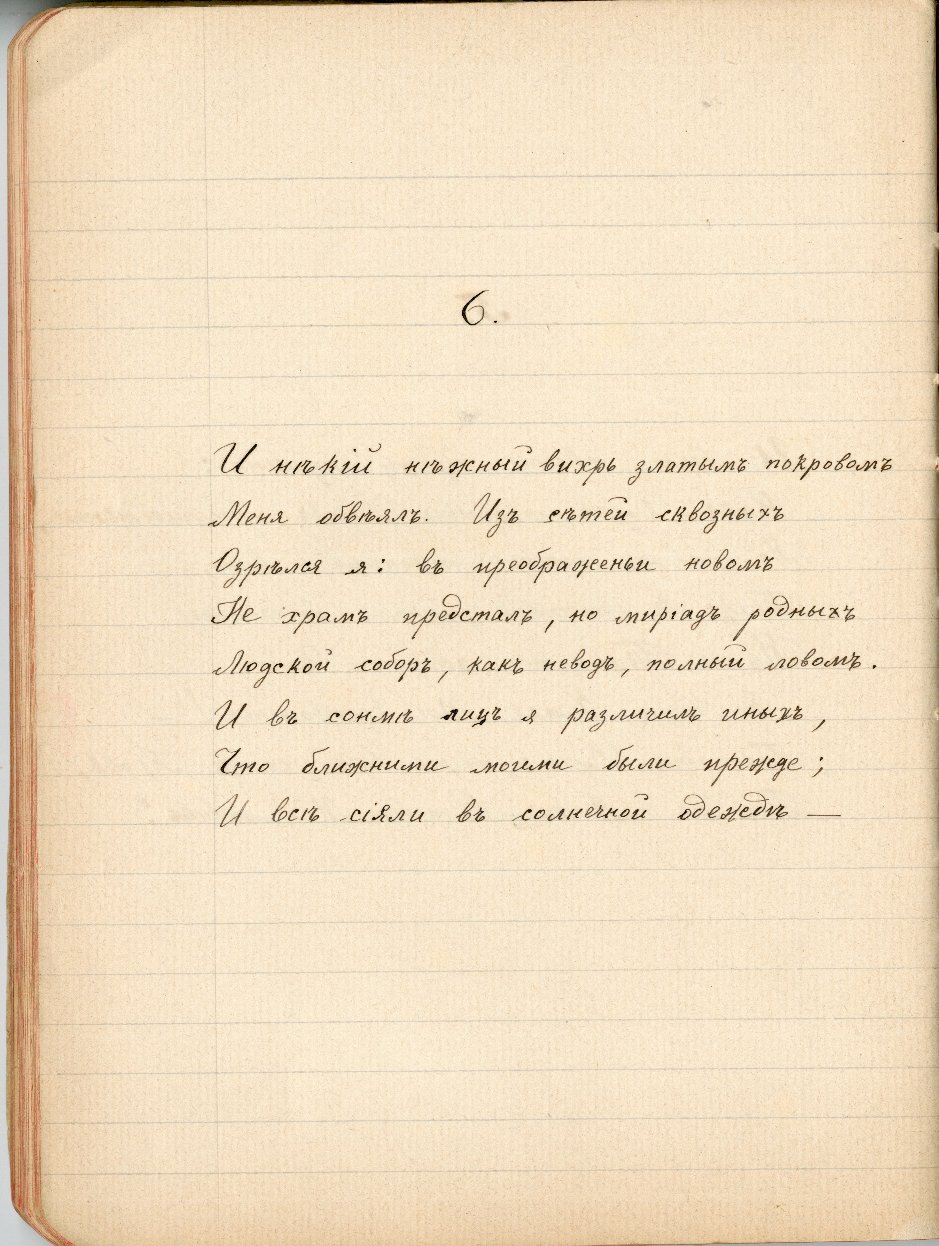 6.
И нѣкій нѣжный вихрь златымъ покровомъ
Меня обвѣялъ. Изъ сѣтей сквозныхъ
Озрѣлся я: въ преображеньи новомъ
Не храмъ предсталъ, но миріадъ родныхъ
Людской соборъ, какъ неводъ, полный ловомъ.
И въ сонмѣ лицъ я различилъ иныхъ,
Что ближними моими были прежде;
И всѣ сіяли въ солнечной одеждѣ —